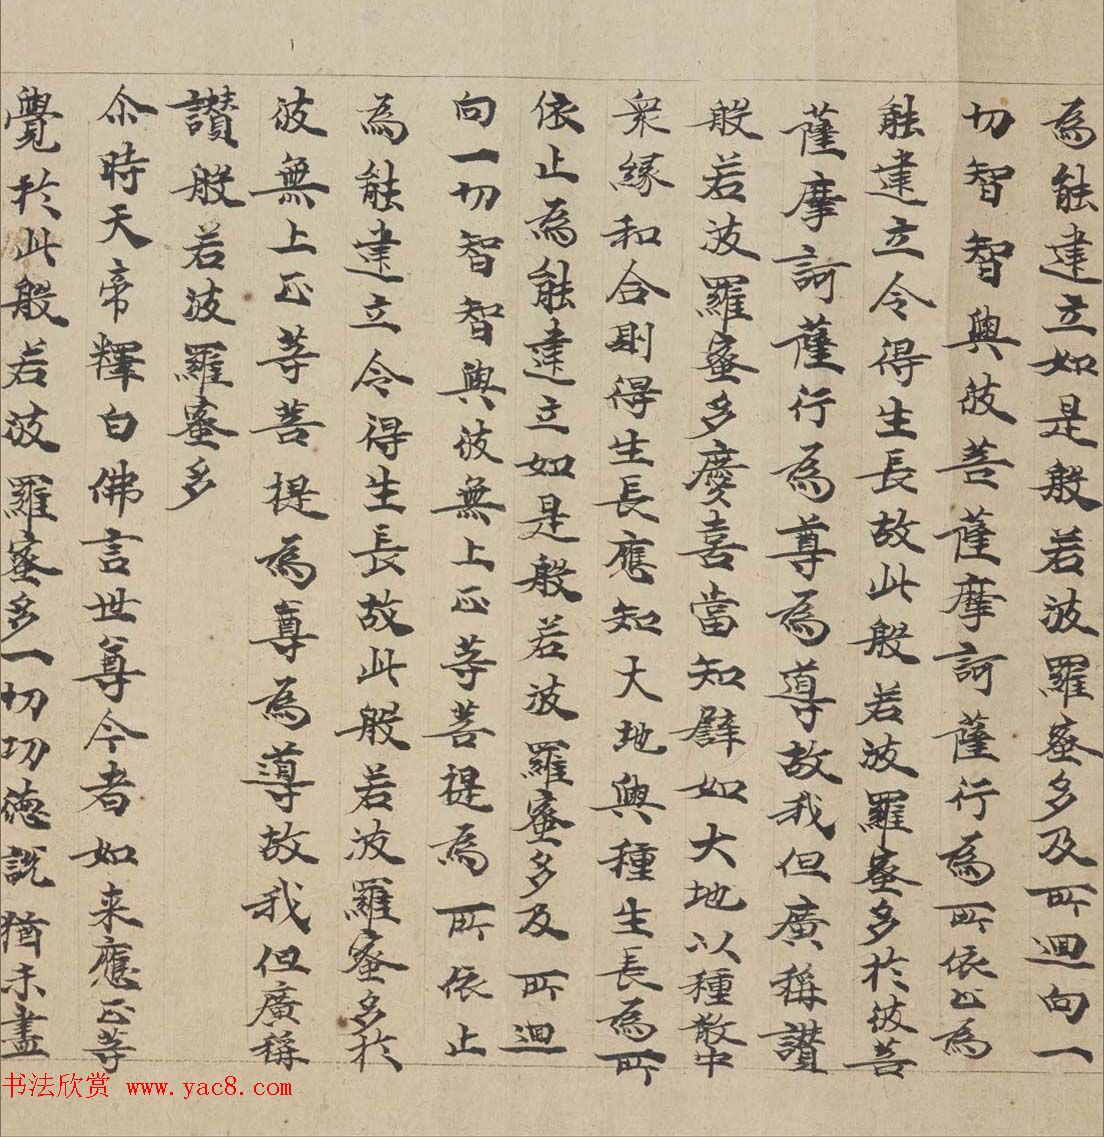 為能建立如是般若波羅蜜多及所迴向一
切智智與彼菩薩摩訶薩行為所依止為
能建立令得生長故此般若波羅蜜多於彼菩
薩摩訶薩行為尊為導故我但廣稱讚
般若波羅蜜多慶喜當知譬如大地以種散中
衆緣和合則得生長應知大地與種生長為所
依止為能建立如是般若波羅蜜多及所迴
向一切智智與彼無上正等菩提為所依止
為能建立令得生長故此般若波羅蜜多於
彼無上正等菩提為尊為導故我但廣稱
讚般若波羅蜜多
尒時天帝釋白佛言世尊今者如来應正等
覺於此般若波羅蜜多一切功德說猶未盡
书法欣赏 www.yac8.com